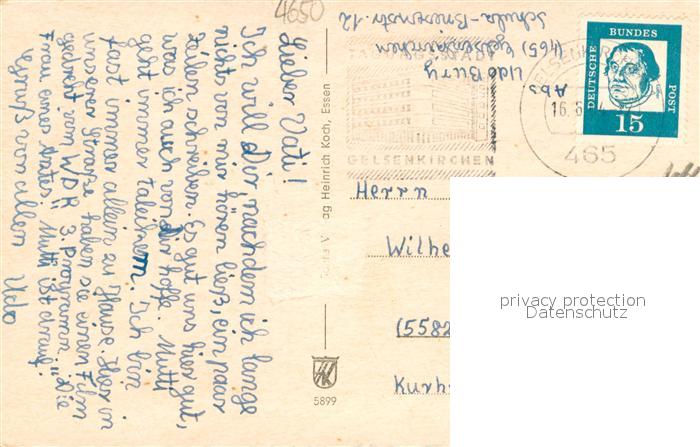 4650
Lieber Vati!
Ich will Dir, nachdem ich lange
nichts von mir hören ließ, ein paar
Zeilen schreiben. Es gut uns hier gut,
was ich auch von Dir hoffe. Mutti
geht immer
Ich bin
fast immer allein zu Hause. Hier in
unserer Straße haben sie einen Film
gedreht vom WDR 3. Programm. "Die
Frau eines Vaters" Mutti ist drauf.
Gruß von allem Udo
Abs. Udo Burg
(465) Gelsenkirchen
Schula-Briesenstr. 12
GELSENKIRCHEN
16.6.
465
DEUTSCHE BUNDESPOST
15
ag Heinrich Koch, Essen
HK
5899
Herrn
Wilhe
(5582
Kurh
privacy protection
Datenschutz